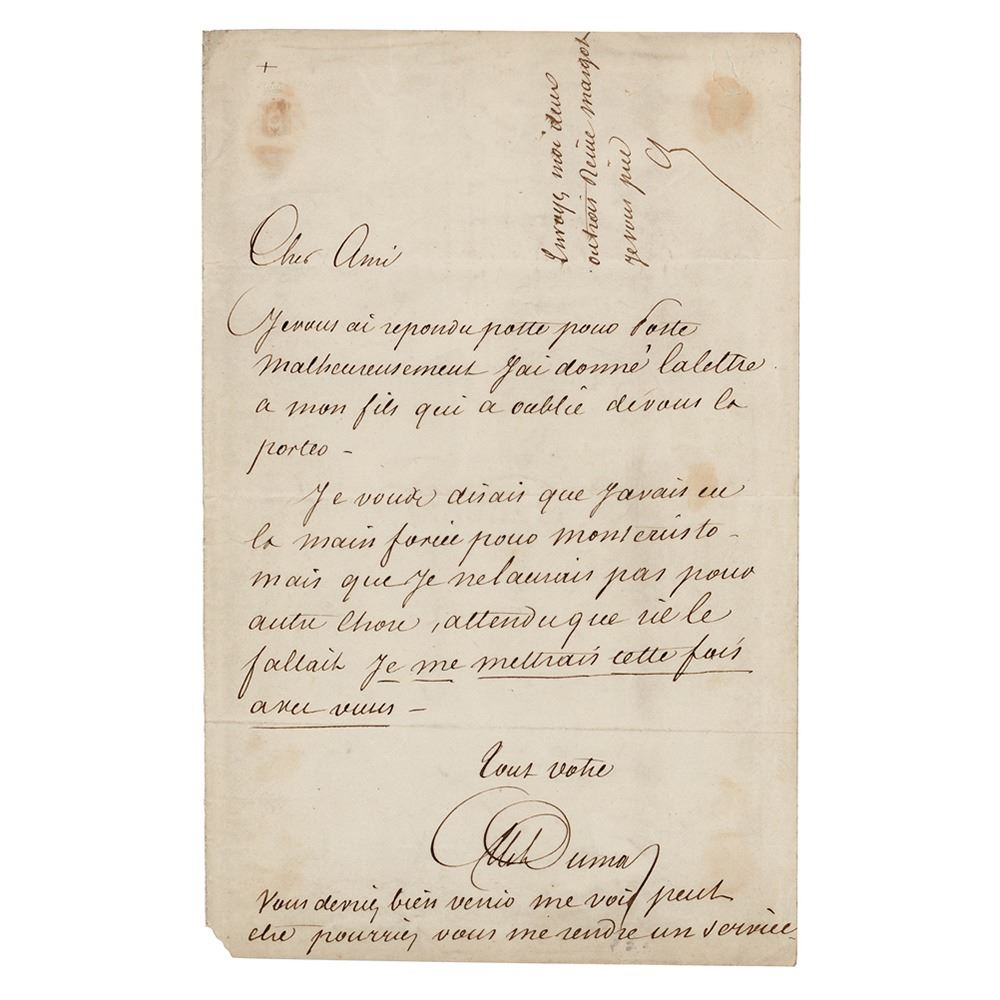 Envoyez moi deux
ou trois Reine margot
je vous prie
Cher Ami
Je vous ai repondu poste pour Poste
malheureusement J'ai donné la lettre
a mon fils qui a oublié de vous la
porter -
Je vous disais que J'avais eu
la main forcée pour montecristo -
mais que Je ne l'aurais pas pour
autre chose, attendu que s'il le
fallait Je me mettrais cette fois
avec vous -
Tout votre
Alex Dumas
Vous devriez bien venir me voir peut
etre pourriez vous me rendre un service